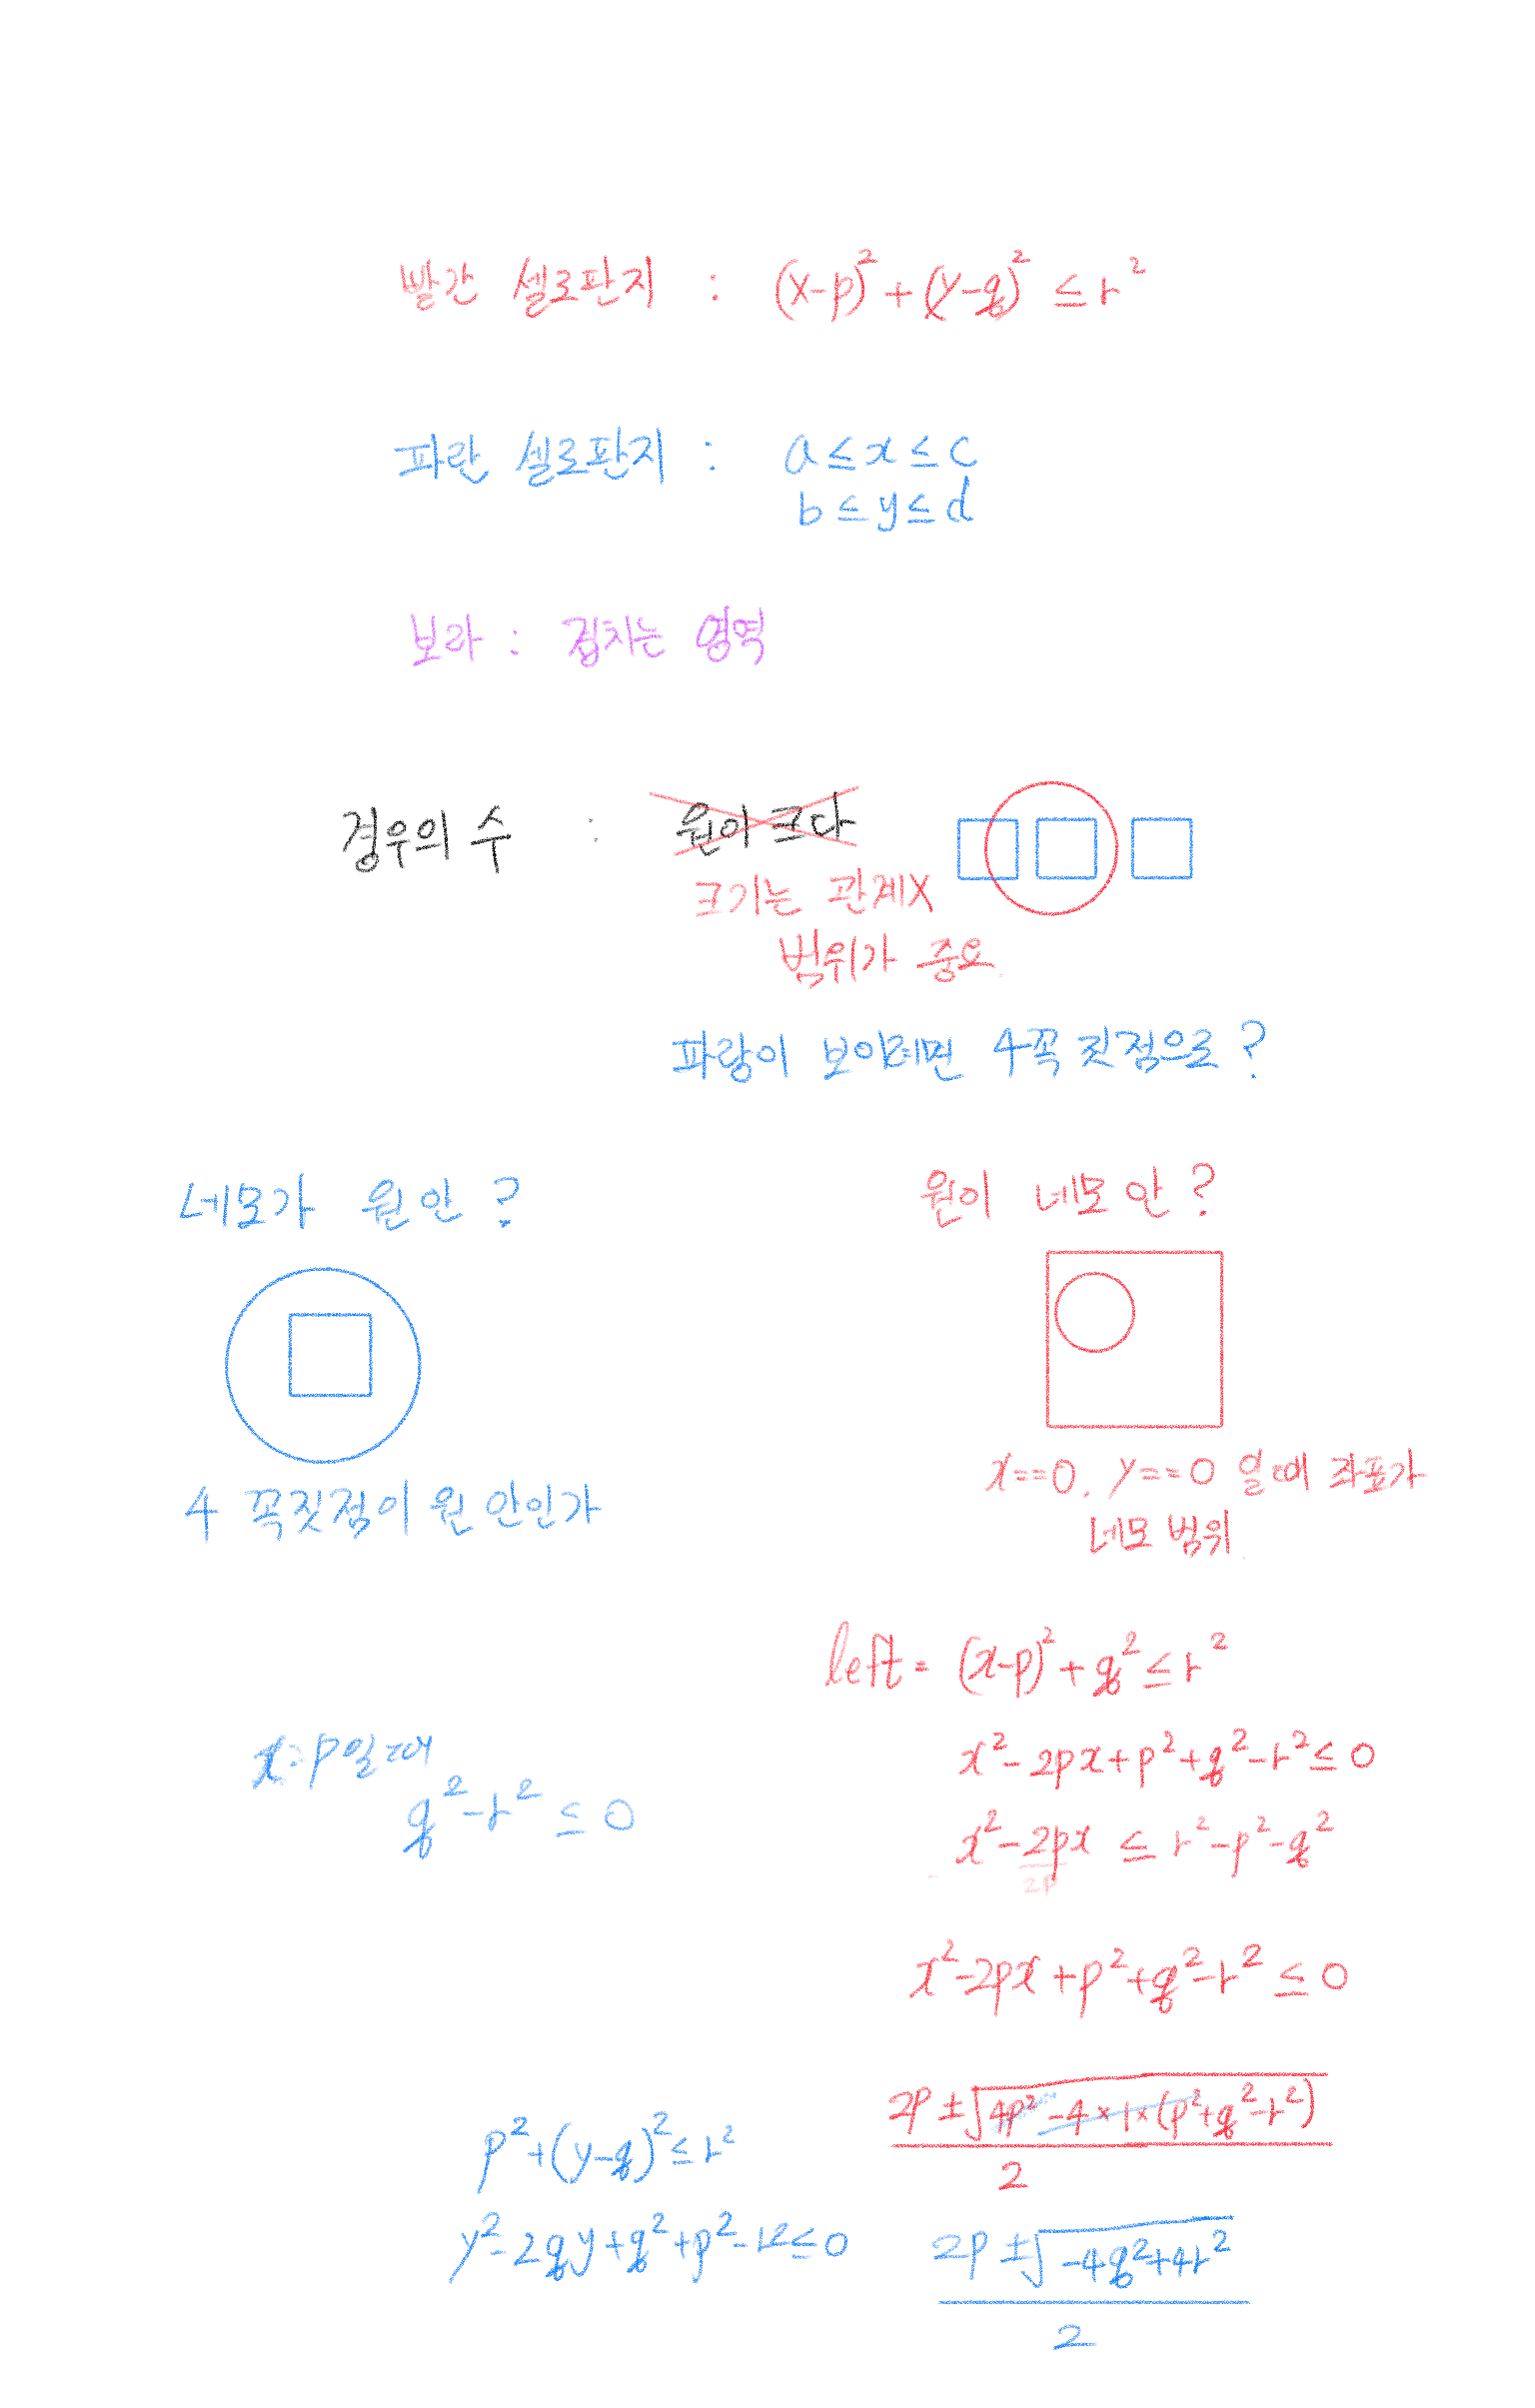 빨간 셀로판지 : (x-p)² + (y-q)² ≤ r²
파란 셀로판지 : a ≤ x ≤ c
b ≤ y ≤ d
보라 : 겹치는 영역
경우의 수 : 원이 크다
크기는 관계X
범위가 중요.
파랑이 보이려면 4꼭짓점으로?
네모가 원 안?
4 꼭짓점이 원 안인가
원이 네모 안?
x==0, y==0 일때 좌표가
네모 범위.
left = (x-p)² + q² ≤ r²
x² - 2px + p² + q² - r² ≤ 0
x² - 2px ≤ r² - p² - q²
2p
x=p일때
q² - r² ≤ 0
x² - 2px + p² + q² - r² ≤ 0
2p ± √(4p² - 4 × 1 × (p² + q² - r²)) / 2
p² + (y-q)² ≤ r²
y² - 2qy + q² + p² - r² ≤ 0
2p ± √(-4q² + 4r²) / 2